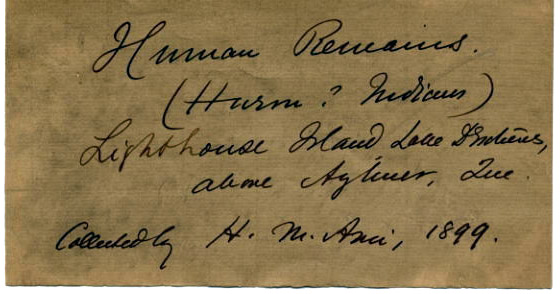 Human Remains.
(Huron? Indians)
Lighthouse Island Lake
above Aylmer, Que.
Collected by H. M. Ami, 1899.